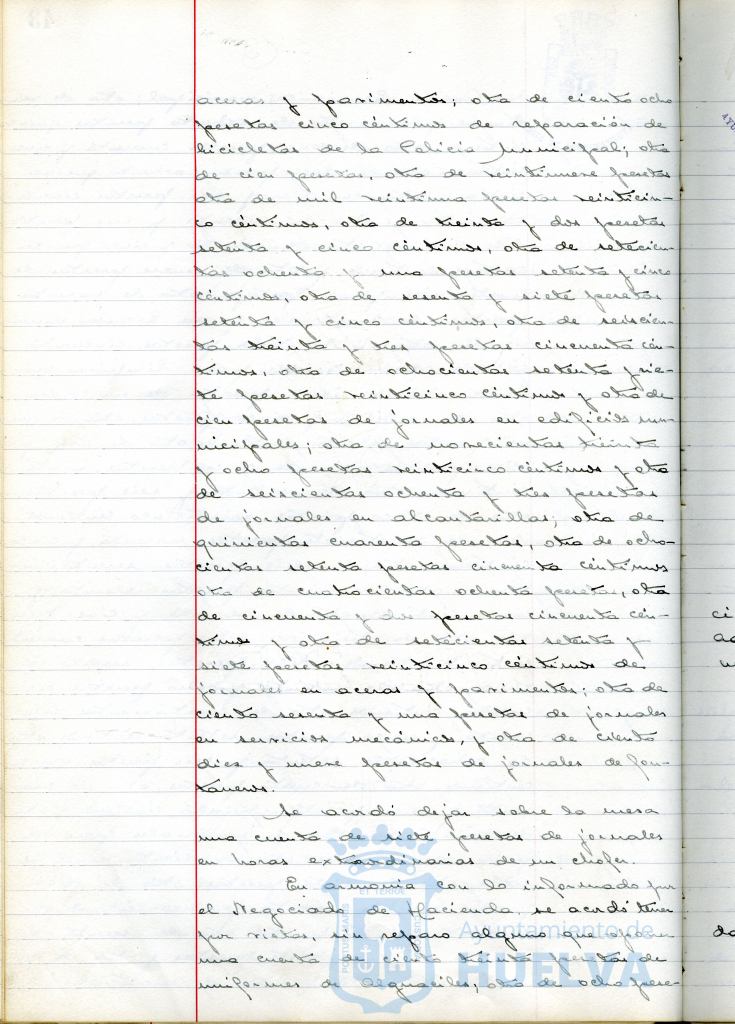 aceras y pavimentos; otra de ciento ocho
pesetas cinco céntimos de reparación de
bicicletas de la Policía Municipal; otra
de cien pesetas, otra de veintinueve pesetas
otra de mil veintiuna pesetas veinticin-
co céntimos, otra de treinta y dos pesetas
setenta y cinco céntimos, otra de setecien-
tas ochenta y una pesetas setenta y cinco
céntimos, otra de sesenta y siete pesetas
setenta y cinco céntimos, otra de seiscien-
tas treinta y tres pesetas cincuenta cén-
timos, otra de ochocientas setenta y sie-
te pesetas veinticinco céntimos y otra de
cien pesetas de jornales en edificios mu-
nicipales; otra de novecientas treinta
y ocho pesetas veinticinco céntimos y otra
de seiscientas ochenta y tres pesetas
de jornales en alcantarillas; otra de
quinientas cuarenta pesetas, otra de ocho-
cientas setenta pesetas cincuenta céntimos
otra de cuatrocientas ochenta pesetas, otra
de cincuenta y dos pesetas cincuenta cén-
timos y otra de setecientas setenta y
siete pesetas veinticinco céntimos de
jornales en aceras y pavimentos; otra de
ciento sesenta y una pesetas de jornales
en servicios mecánicos, y otra de ciento
diez y nueve pesetas de jornales de fon-
taneros.
Se acordó dejar sobre la mesa
una cuenta de siete pesetas de jornales
en horas extraordinarias de un chofer.
En armonía con lo informado por
el Negociado de Hacienda, se acordó tener
por vistas, sin reparo alguno que oponer
una cuenta de ciento treinta pesetas de
uniformes de Alguaciles; otra de ocho pese-
Ayuntamiento de
HUELVA